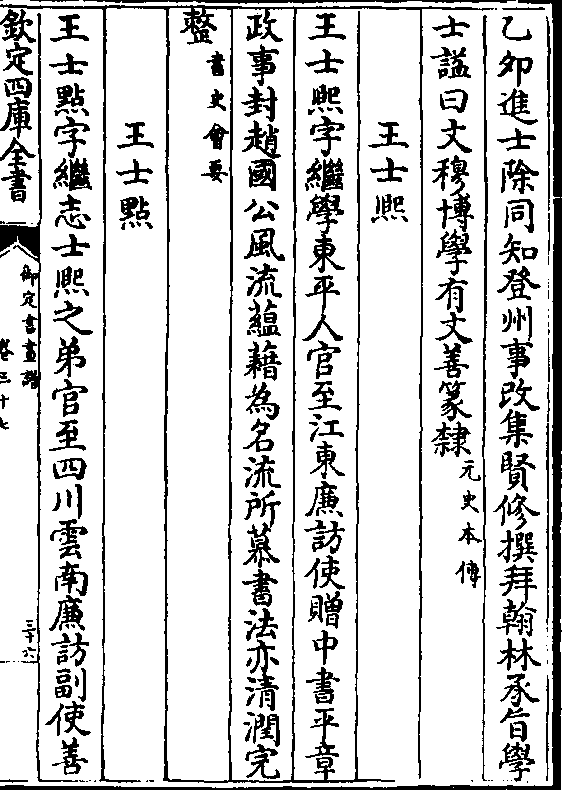 乙卯進士除同知登州事改集賢修撰拜翰林承旨學
士諡曰文穆博學有文善篆隸元史本傳
王士熙
王士熙字繼學東平人官至江東廉訪使贈中書平章
政事封趙國公風流蘊藉為名流所慕書法亦清潤完
整書史會要
王士點
王士點字繼志士熙之弟官至四川雲南廉訪副使善
欽定四庫全書
御定書畫譜
卷三十七
三十六